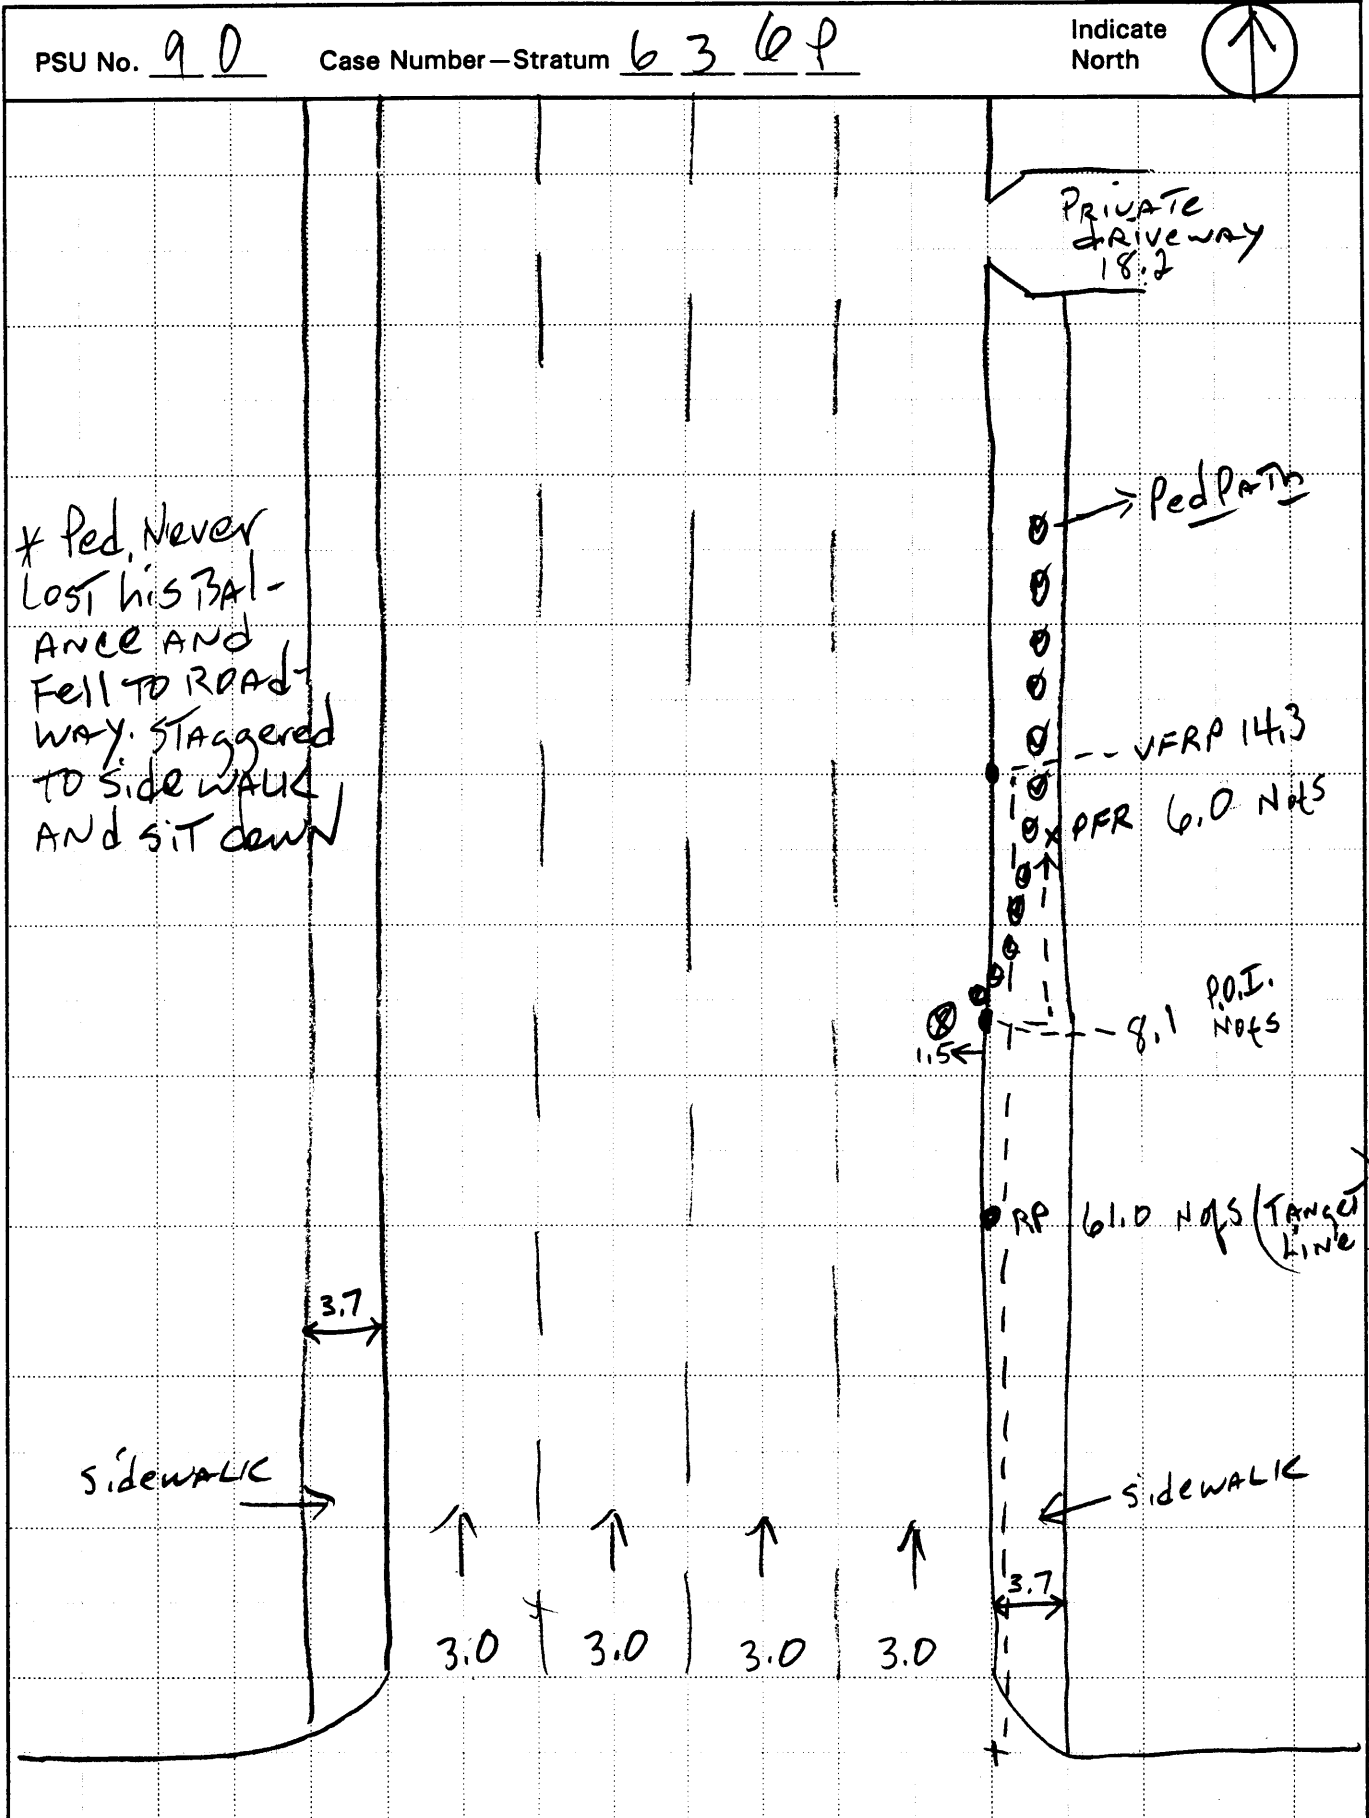 PSU No. 90 Case Number—Stratum 636P Indicate North
Private
driveway
18.2
Ped Path
* Ped. Never
Lost his Bal-
ance and
Fell to Road-
way. Staggered
to sidewalk
and sit down
VFRP 14.3
PFR 6.0 NofS
P.O.I.
8.1 NofS
1.5
RP 61.0 NofS (Tanget
Line)
3.7
sidewalk
sidewalk
3.7
3.0 3.0 3.0 3.0